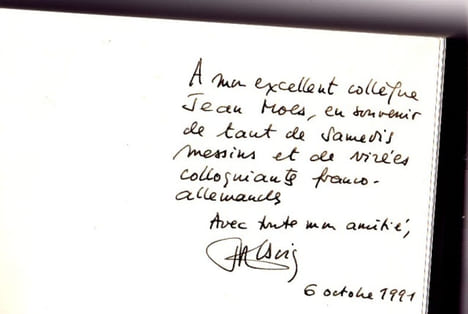 A mon excellent collègue
Jean Moes, en souvenir
de tant de samedis
messins et de virées
colloquiantes franco-
allemandes
Avec toute mon amitié,
6 octobre 1991